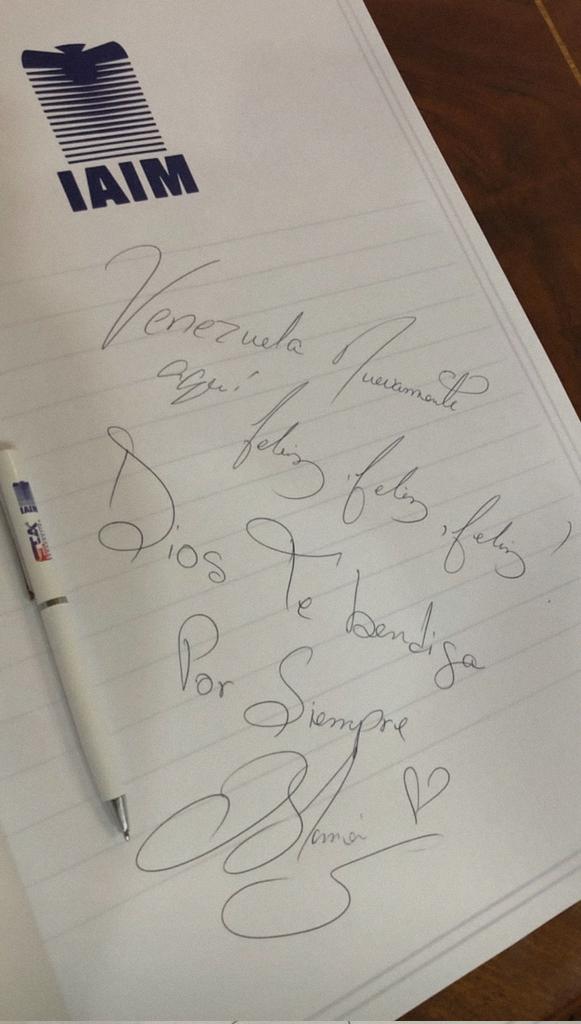 IAIM
Venezuela Nuevamente
aquí
feliz, feliz, feliz,
Dios Te bendiga
Por Siempre
IAIM